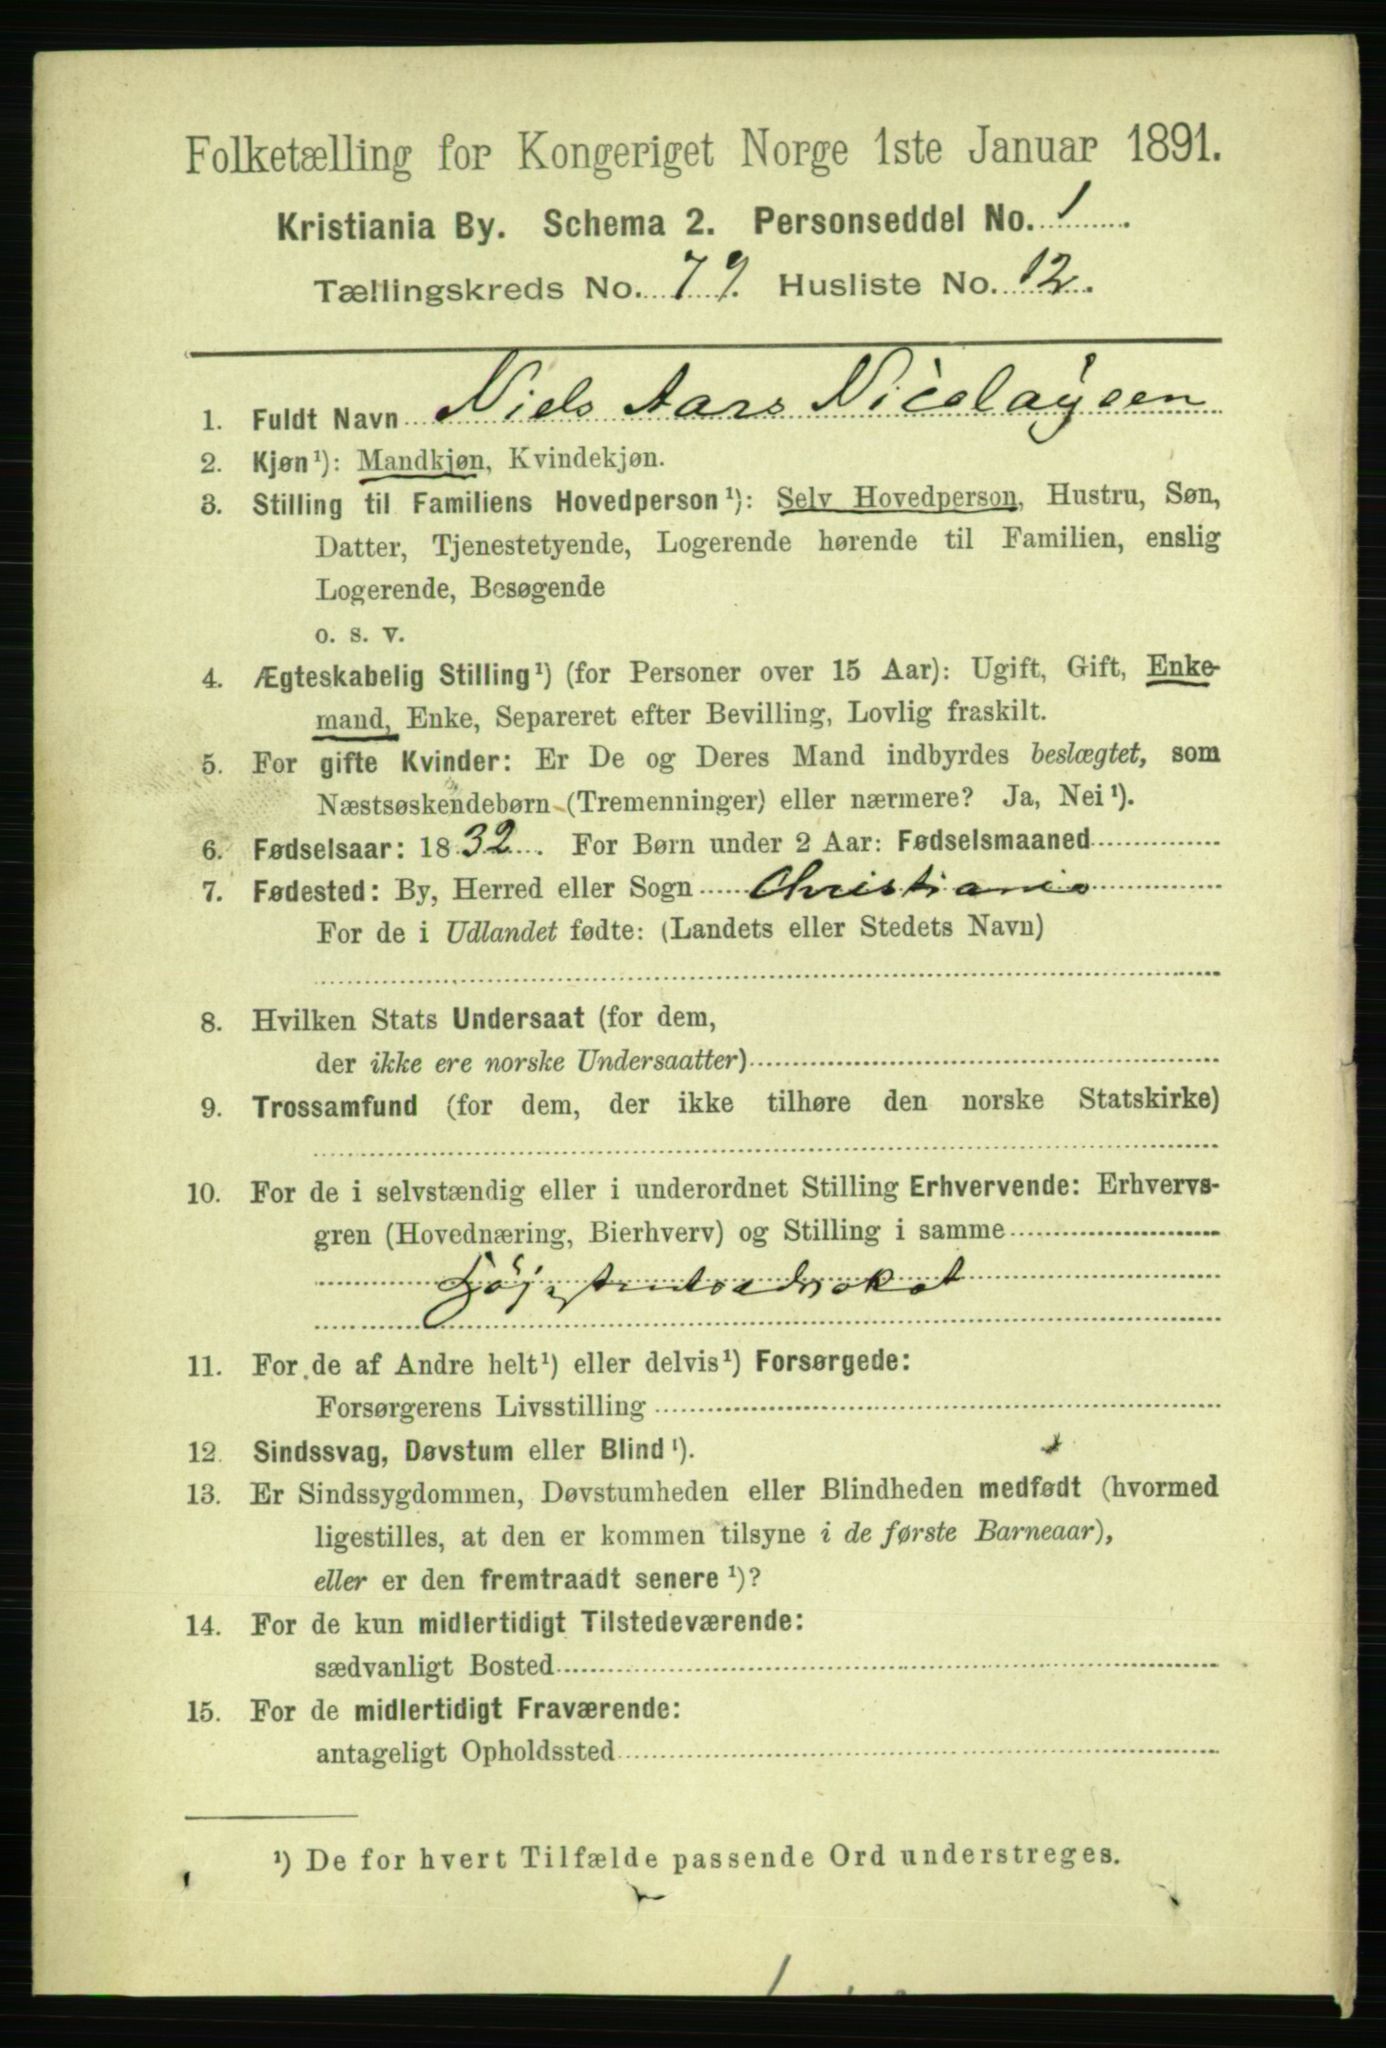 Folketælling for Kongeriget Norge 1ste Januar 1891.
Kristiania By. Schema 2. Personseddel No. 1
Tællingskreds No. 79. Husliste No. 12.
1. Fuldt Navn Niels Aars Nicolaysen
2. Kjøn¹): Mandkjøn, Kvindekjøn.
3. Stilling til Familiens Hovedperson¹): Selv Hovedperson, Hustru, Søn,
Datter, Tjenestetyende, Logerende hørende til Familien, enslig
Logerende, Besøgende
o. s. v.
4. Ægteskabelig Stilling¹) (for Personer over 15 Aar): Ugift, Gift, Enke-
mand, Enke, Separeret efter Bevilling, Lovlig fraskilt.
5. For gifte Kvinder: Er De og Deres Mand indbyrdes beslægtet, som
Næstsøskendebørn (Tremenninger) eller nærmere? Ja, Nei¹).
6. Fødselsaar: 1832. For Børn under 2 Aar: Fødselsmaaned
7. Fødested: By, Herred eller Sogn Christiania
For de i Udlandet fødte: (Landets eller Stedets Navn)
8. Hvilken Stats Undersaat (for dem,
der ikke ere norske Undersaatter)
9. Trossamfund (for dem, der ikke tilhøre den norske Statskirke)
10. For de i selvstændig eller i underordnet Stilling Erhvervende: Erhvervs-
gren (Hovednæring, Bierhverv) og Stilling i samme
Højestretsadvokat
11. For de af Andre helt¹) eller delvis¹) Forsørgede:
Forsørgerens Livsstilling
12. Sindssvag, Døvstum eller Blind¹).
13. Er Sindssygdommen, Døvstumheden eller Blindheden medfødt (hvormed
ligestilles, at den er kommen tilsyne i de første Barneaar),
eller er den fremtraadt senere¹)?
14. For de kun midlertidigt Tilstedeværende:
sædvanligt Bosted
15. For de midlertidigt Fraværende:
antageligt Opholdssted
¹) De for hvert Tilfælde passende Ord understreges.